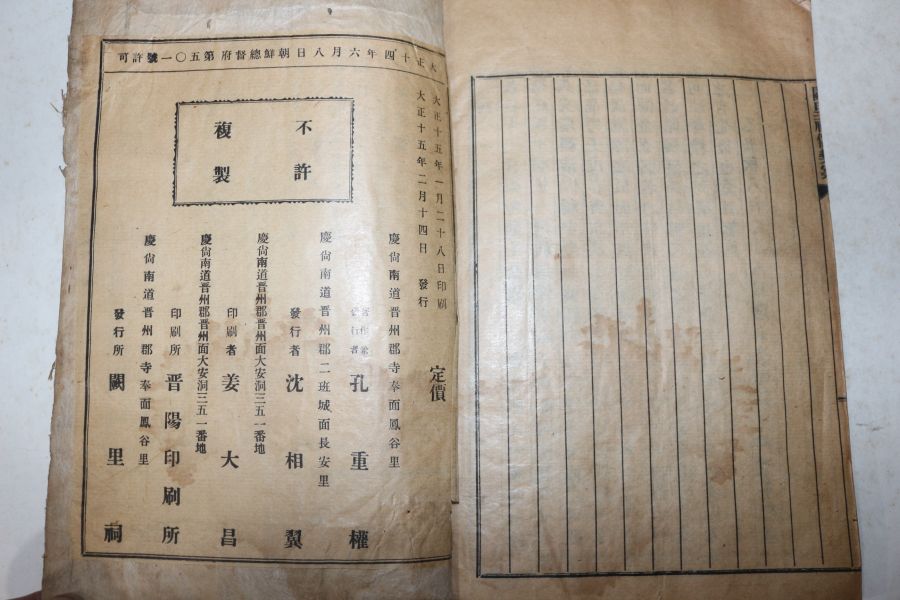 大正十四年六月八日朝鮮總督府第五〇一號許可
不許
複製
大正十五年一月二十八日印刷
大正十五年二月十四日 發行
定價
慶尙南道晋州郡寺奉面鳳谷里
孔重權
慶尙南道晋州郡二班城面長安里
發行者 沈相翼
慶尙南道晋州郡晋州面大安洞三五一番地
印刷者 姜大昌
慶尙南道晋州郡晋州面大安洞三五一番地
印刷所 晋陽印刷所
慶尙南道晋州郡寺奉面鳳谷里
發行所 闕里祠